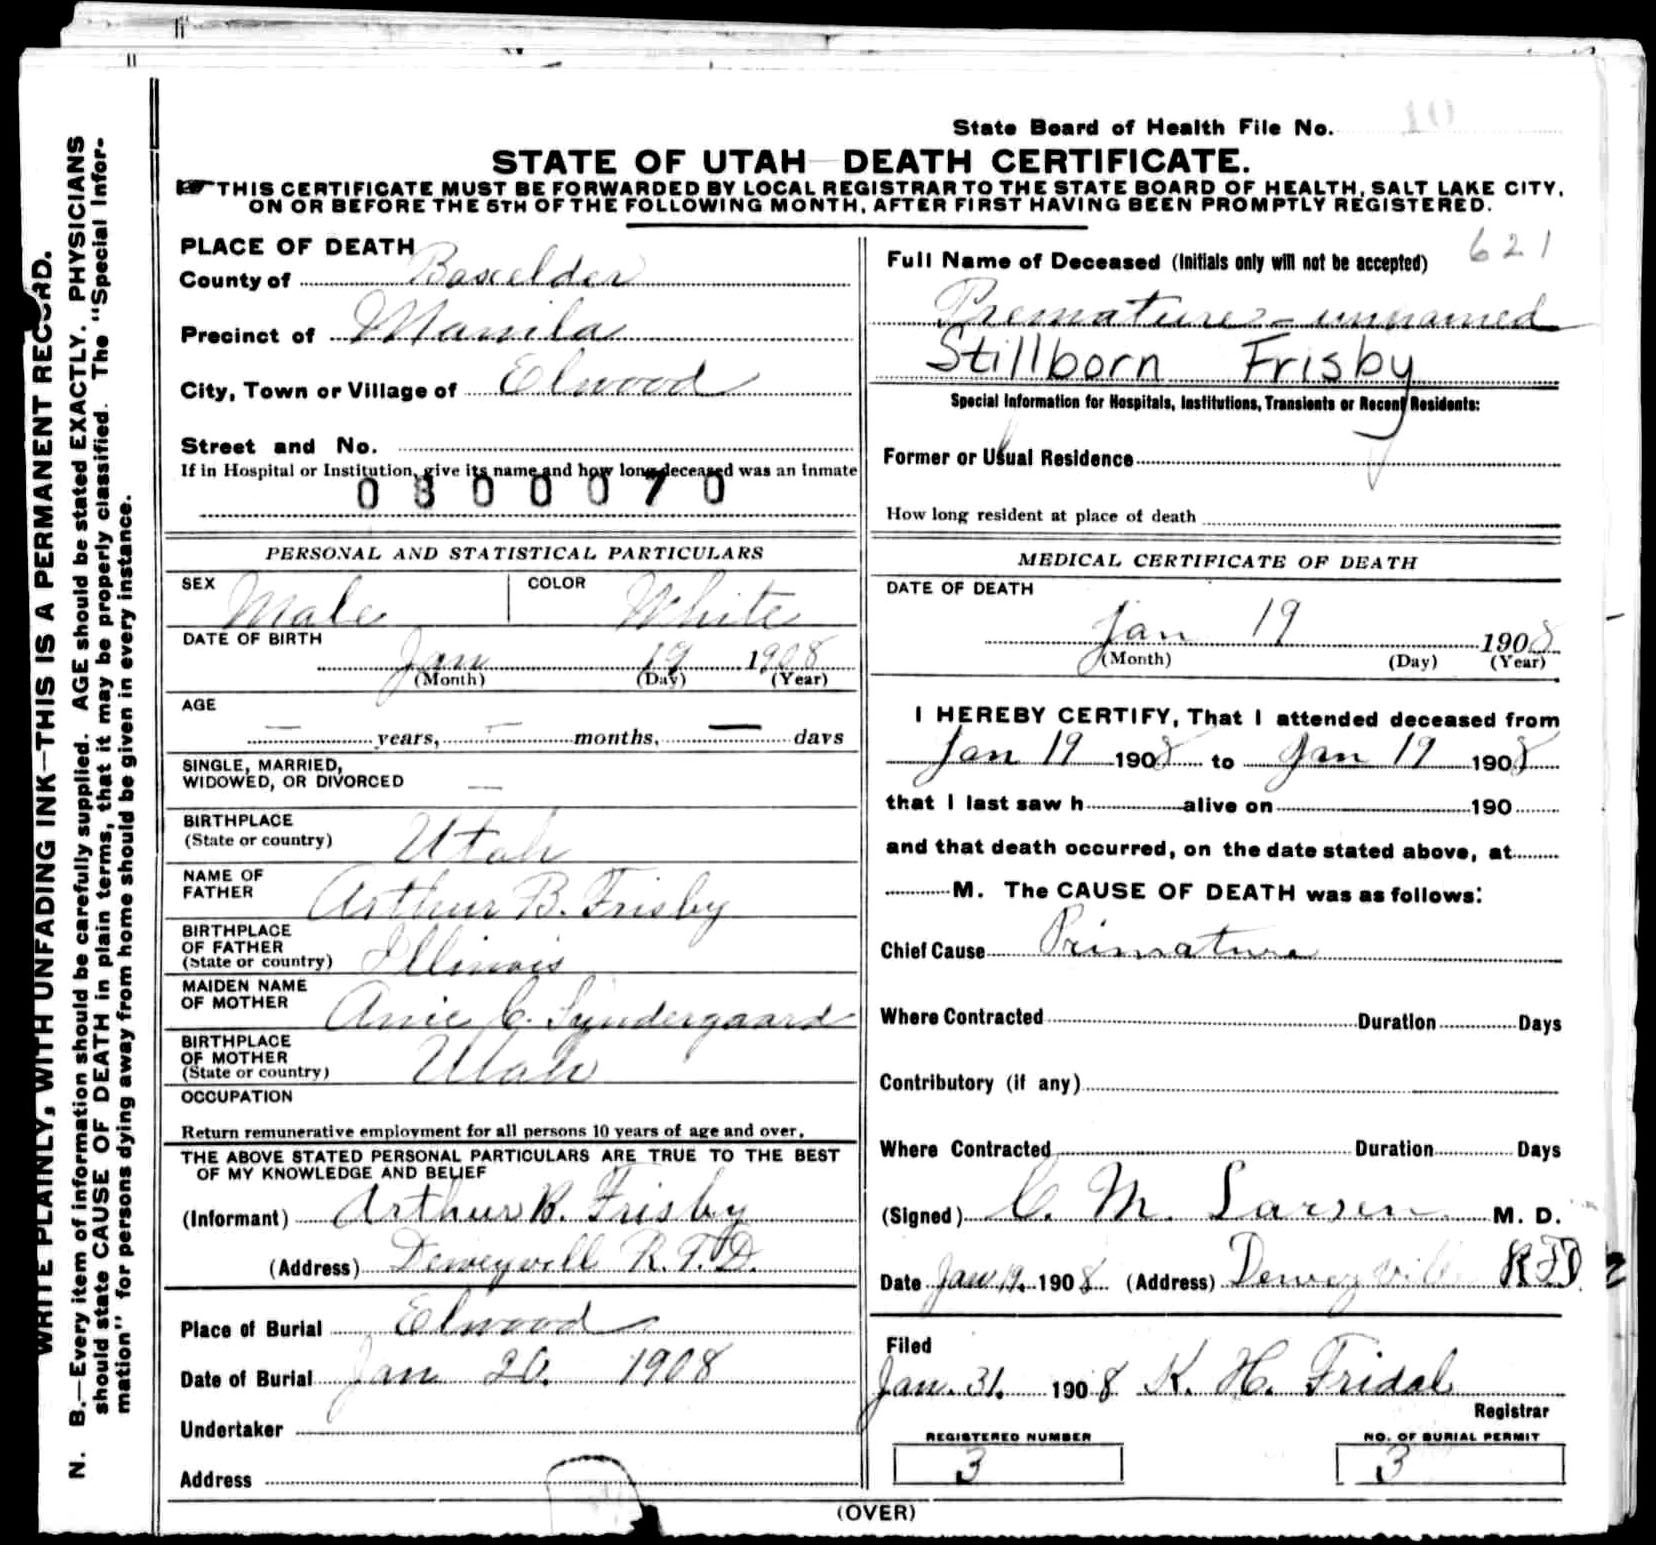 WRITE PLAINLY, WITH UNFADING INK—THIS IS A PERMANENT RECORD.
N. B.—Every item of information should be carefully supplied. AGE should be stated EXACTLY. PHYSICIANS
should state CAUSE OF DEATH in plain terms, that it may be properly classified. The "Special Infor-
mation" for persons dying away from home should be given in every instance.
State Board of Health File No. 10
STATE OF UTAH—DEATH CERTIFICATE.
THIS CERTIFICATE MUST BE FORWARDED BY LOCAL REGISTRAR TO THE STATE BOARD OF HEALTH, SALT LAKE CITY,
ON OR BEFORE THE 5TH OF THE FOLLOWING MONTH, AFTER FIRST HAVING BEEN PROMPTLY REGISTERED.
PLACE OF DEATH
County of Boxelder
Precinct of Manila
City, Town or Village of Elwood
Street and No.
If in Hospital or Institution, give its name and how long deceased was an inmate
0300070
PERSONAL AND STATISTICAL PARTICULARS
SEX Male COLOR White
DATE OF BIRTH
Jan 19 1908
(Month) (Day) (Year)
AGE
— years, — months, — days
SINGLE, MARRIED,
WIDOWED, OR DIVORCED —
BIRTHPLACE
(State or country) Utah
NAME OF
FATHER Arthur B. Frisby
BIRTHPLACE
OF FATHER
(State or country) Illinois
MAIDEN NAME
OF MOTHER Anie C. Syndergaard
BIRTHPLACE
OF MOTHER
(State or country) Utah
OCCUPATION
Return remunerative employment for all persons 10 years of age and over.
THE ABOVE STATED PERSONAL PARTICULARS ARE TRUE TO THE BEST
OF MY KNOWLEDGE AND BELIEF
(Informant) Arthur B. Frisby
(Address) Deweyvill R.F.D.
Place of Burial Elwood
Date of Burial Jan 20. 1908
Undertaker
Address
621
Full Name of Deceased (Initials only will not be accepted)
Premature - unnamed
Stillborn Frisby
Special Information for Hospitals, Institutions, Transients or Recent Residents:
Former or Usual Residence
How long resident at place of death
MEDICAL CERTIFICATE OF DEATH
DATE OF DEATH
Jan 19 1908
(Month) (Day) (Year)
I HEREBY CERTIFY, That I attended deceased from
Jan 19 1908 to Jan 19 1908
that I last saw h alive on 190
and that death occurred, on the date stated above, at
M. The CAUSE OF DEATH was as follows:
Chief Cause Primature
Where Contracted Duration Days
Contributory (if any)
Where Contracted Duration Days
(Signed) C. M. Larsen M. D.
Date Jan 19. 1908 (Address) Deweyville RFD 2
Filed
Jan. 31. 1908 K. H. Fridal
Registrar
REGISTERED NUMBER NO. OF BURIAL PERMIT
3 3
(OVER)